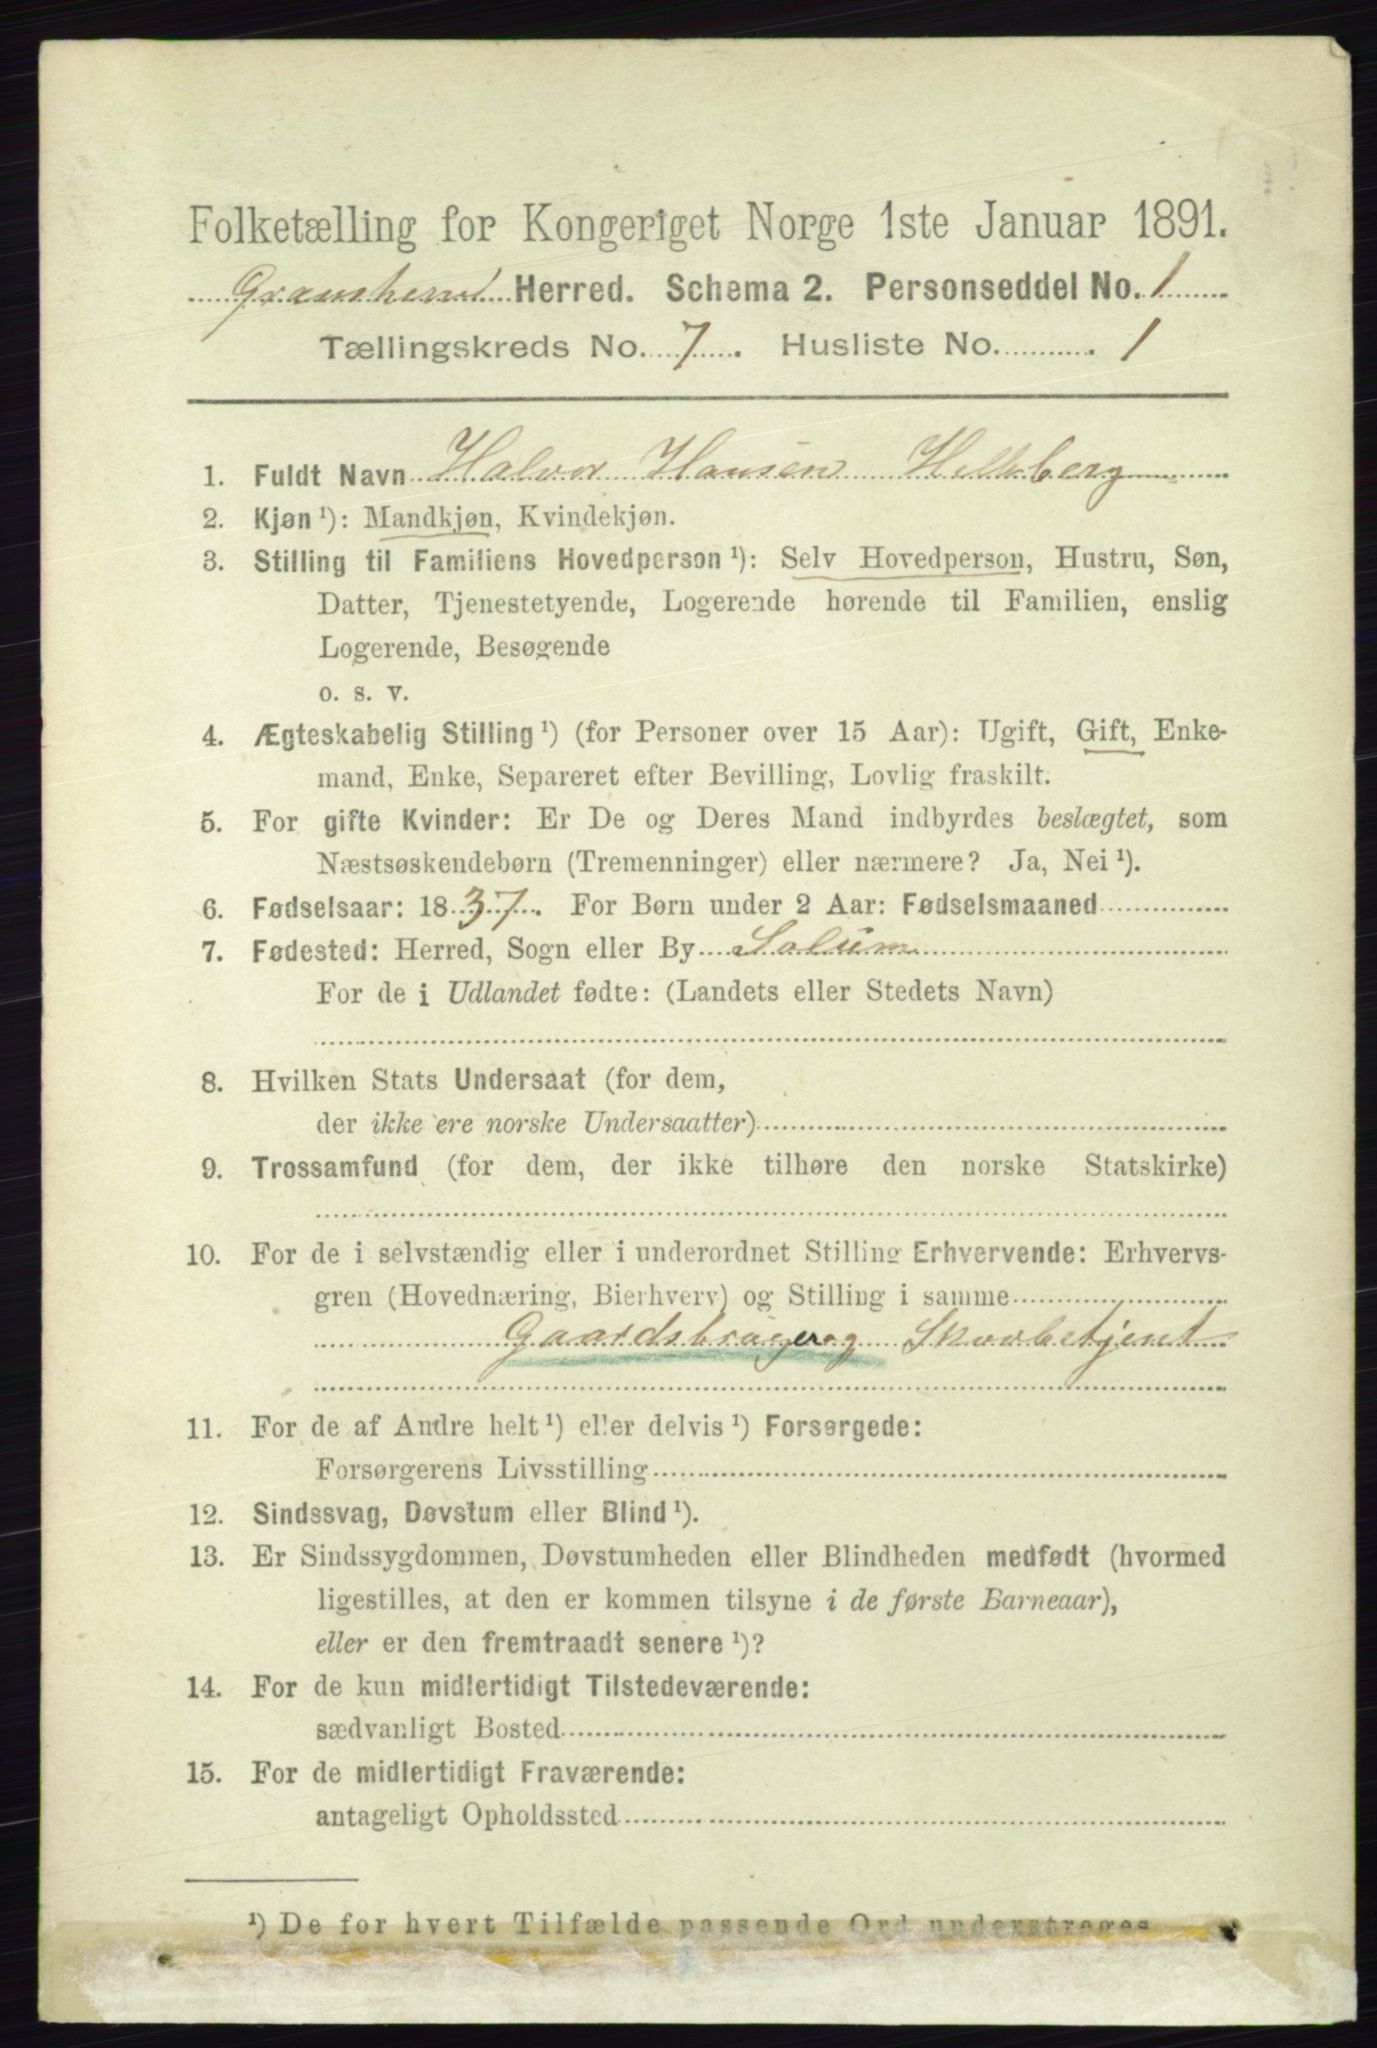 Folketælling for Kongeriget Norge 1ste Januar 1891.
Gransherred Herred. Schema 2. Personseddel No. 1
Tællingskreds No. 7. Husliste No. 1
1. Fuldt Navn Halvor Hansen Hellsberg
2. Kjøn ¹): Mandkjøn, Kvindekjøn.
3. Stilling til Familiens Hovedperson ¹): Selv Hovedperson, Hustru, Søn,
Datter, Tjenestetyende, Logerende hørende til Familien, enslig
Logerende, Besøgende
o. s. v.
4. Ægteskabelig Stilling ¹) (for Personer over 15 Aar): Ugift, Gift, Enke-
mand, Enke, Separeret efter Bevilling, Lovlig fraskilt.
5. For gifte Kvinder: Er De og Deres Mand indbyrdes beslægtet, som
Næstsøskendebørn (Tremenninger) eller nærmere? Ja, Nei ¹).
6. Fødselsaar: 1837. For Børn under 2 Aar: Fødselsmaaned
7. Fødested: Herred, Sogn eller By Solum
For de i Udlandet fødte: (Landets eller Stedets Navn)
8. Hvilken Stats Undersaat (for dem,
der ikke ere norske Undersaatter)
9. Trossamfund (for dem, der ikke tilhøre den norske Statskirke)
10. For de i selvstændig eller i underordnet Stilling Erhvervende: Erhvervs-
gren (Hovednæring, Bierhverv) og Stilling i samme
Gaardsbruger og Skovbetjent
11. For de af Andre helt ¹) eller delvis ¹) Forsørgede:
Forsørgerens Livsstilling
12. Sindssvag, Døvstum eller Blind ¹).
13. Er Sindssygdommen, Døvstumheden eller Blindheden medfødt (hvormed
ligestilles, at den er kommen tilsyne i de første Barneaar),
eller er den fremtraadt senere ¹)?
14. For de kun midlertidigt Tilstedeværende:
sædvanligt Bosted
15. For de midlertidigt Fraværende:
antageligt Opholdssted
¹) De for hvert Tilfælde passende Ord understreges